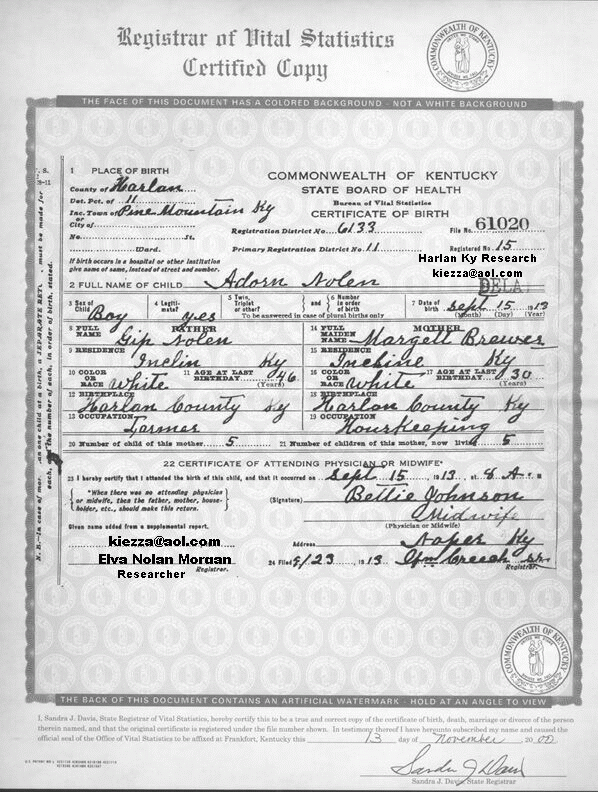 Registrar of Vital Statistics
Certified Copy
COMMONWEALTH OF KENTUCKY
THE FACE OF THIS DOCUMENT HAS A COLORED BACKGROUND - NOT A WHITE BACKGROUND
1 PLACE OF BIRTH
County of Harlan
Vot. Pct. of 11
Inc. Town of Pine Mountain Ky
or
City of
No. St.
Ward.
If birth occurs in a hospital or other institution
give name of same, instead of street and number.
COMMONWEALTH OF KENTUCKY
STATE BOARD OF HEALTH
Bureau of Vital Statistics
CERTIFICATE OF BIRTH
Registration District No. 6133
File No. 61020
Primary Registration District No. 11
Registered No. 15
Harlan Ky Research
kiezza@aol.com
2 FULL NAME OF CHILD Adorn Nolen
DELA
3 Sex of Child Boy
4 Legiti-mate? yes
5 Twin, Triplet or other?
and
6 Number in order of birth
To be answered in case of plural births only
7 Date of birth Sept 15 1913
(Month) (Day) (Year)
FATHER
8 FULL NAME Gip Nolen
9 RESIDENCE Inclin Ky
10 COLOR OR RACE White
11 AGE AT LAST BIRTHDAY 46
(Years)
12 BIRTHPLACE Harlan County Ky
13 OCCUPATION Farmer
MOTHER
14 FULL MAIDEN NAME Margett Brewer
15 RESIDENCE Incline Ky
16 COLOR OR RACE White
17 AGE AT LAST BIRTHDAY 30
(Years)
18 BIRTHPLACE Harlan County Ky
19 OCCUPATION Hourkeeping
20 Number of child of this mother 5
21 Number of children of this mother, now living 5
22 CERTIFICATE OF ATTENDING PHYSICIAN OR MIDWIFE*
23 I hereby certify that I attended the birth of this child, and that it occurred on Sept 15, 1913, at 8 A. M
*When there was no attending physician
or midwife, then the father, mother, house-
holder, etc., should make this return.
(Signature) Bettie Johnson
Midwife
(Physician or Midwife)
Given name added from a supplemental report.
kiezza@aol.com
Elva Nolan Morgan
Registrar.
Researcher
Address Naper Ky
24 Filed 9/23, 1913 Wm Creech Sr
Registrar.
THE BACK OF THIS DOCUMENT CONTAINS AN ARTIFICIAL WATERMARK - HOLD AT AN ANGLE TO VIEW
COMMONWEALTH OF KENTUCKY
I, Sandra J. Davis, State Registrar of Vital Statistics, hereby certify this to be a true and correct copy of the certificate of birth, death, marriage or divorce of the person
therein named, and that the original certificate is registered under the file number shown. In testimony thereof I have hereunto subscribed my name and caused the
official seal of the Office of Vital Statistics to be affixed at Frankfort, Kentucky this 13 day of November 2000
Sandra J Davis
Sandra J. Davis, State Registrar